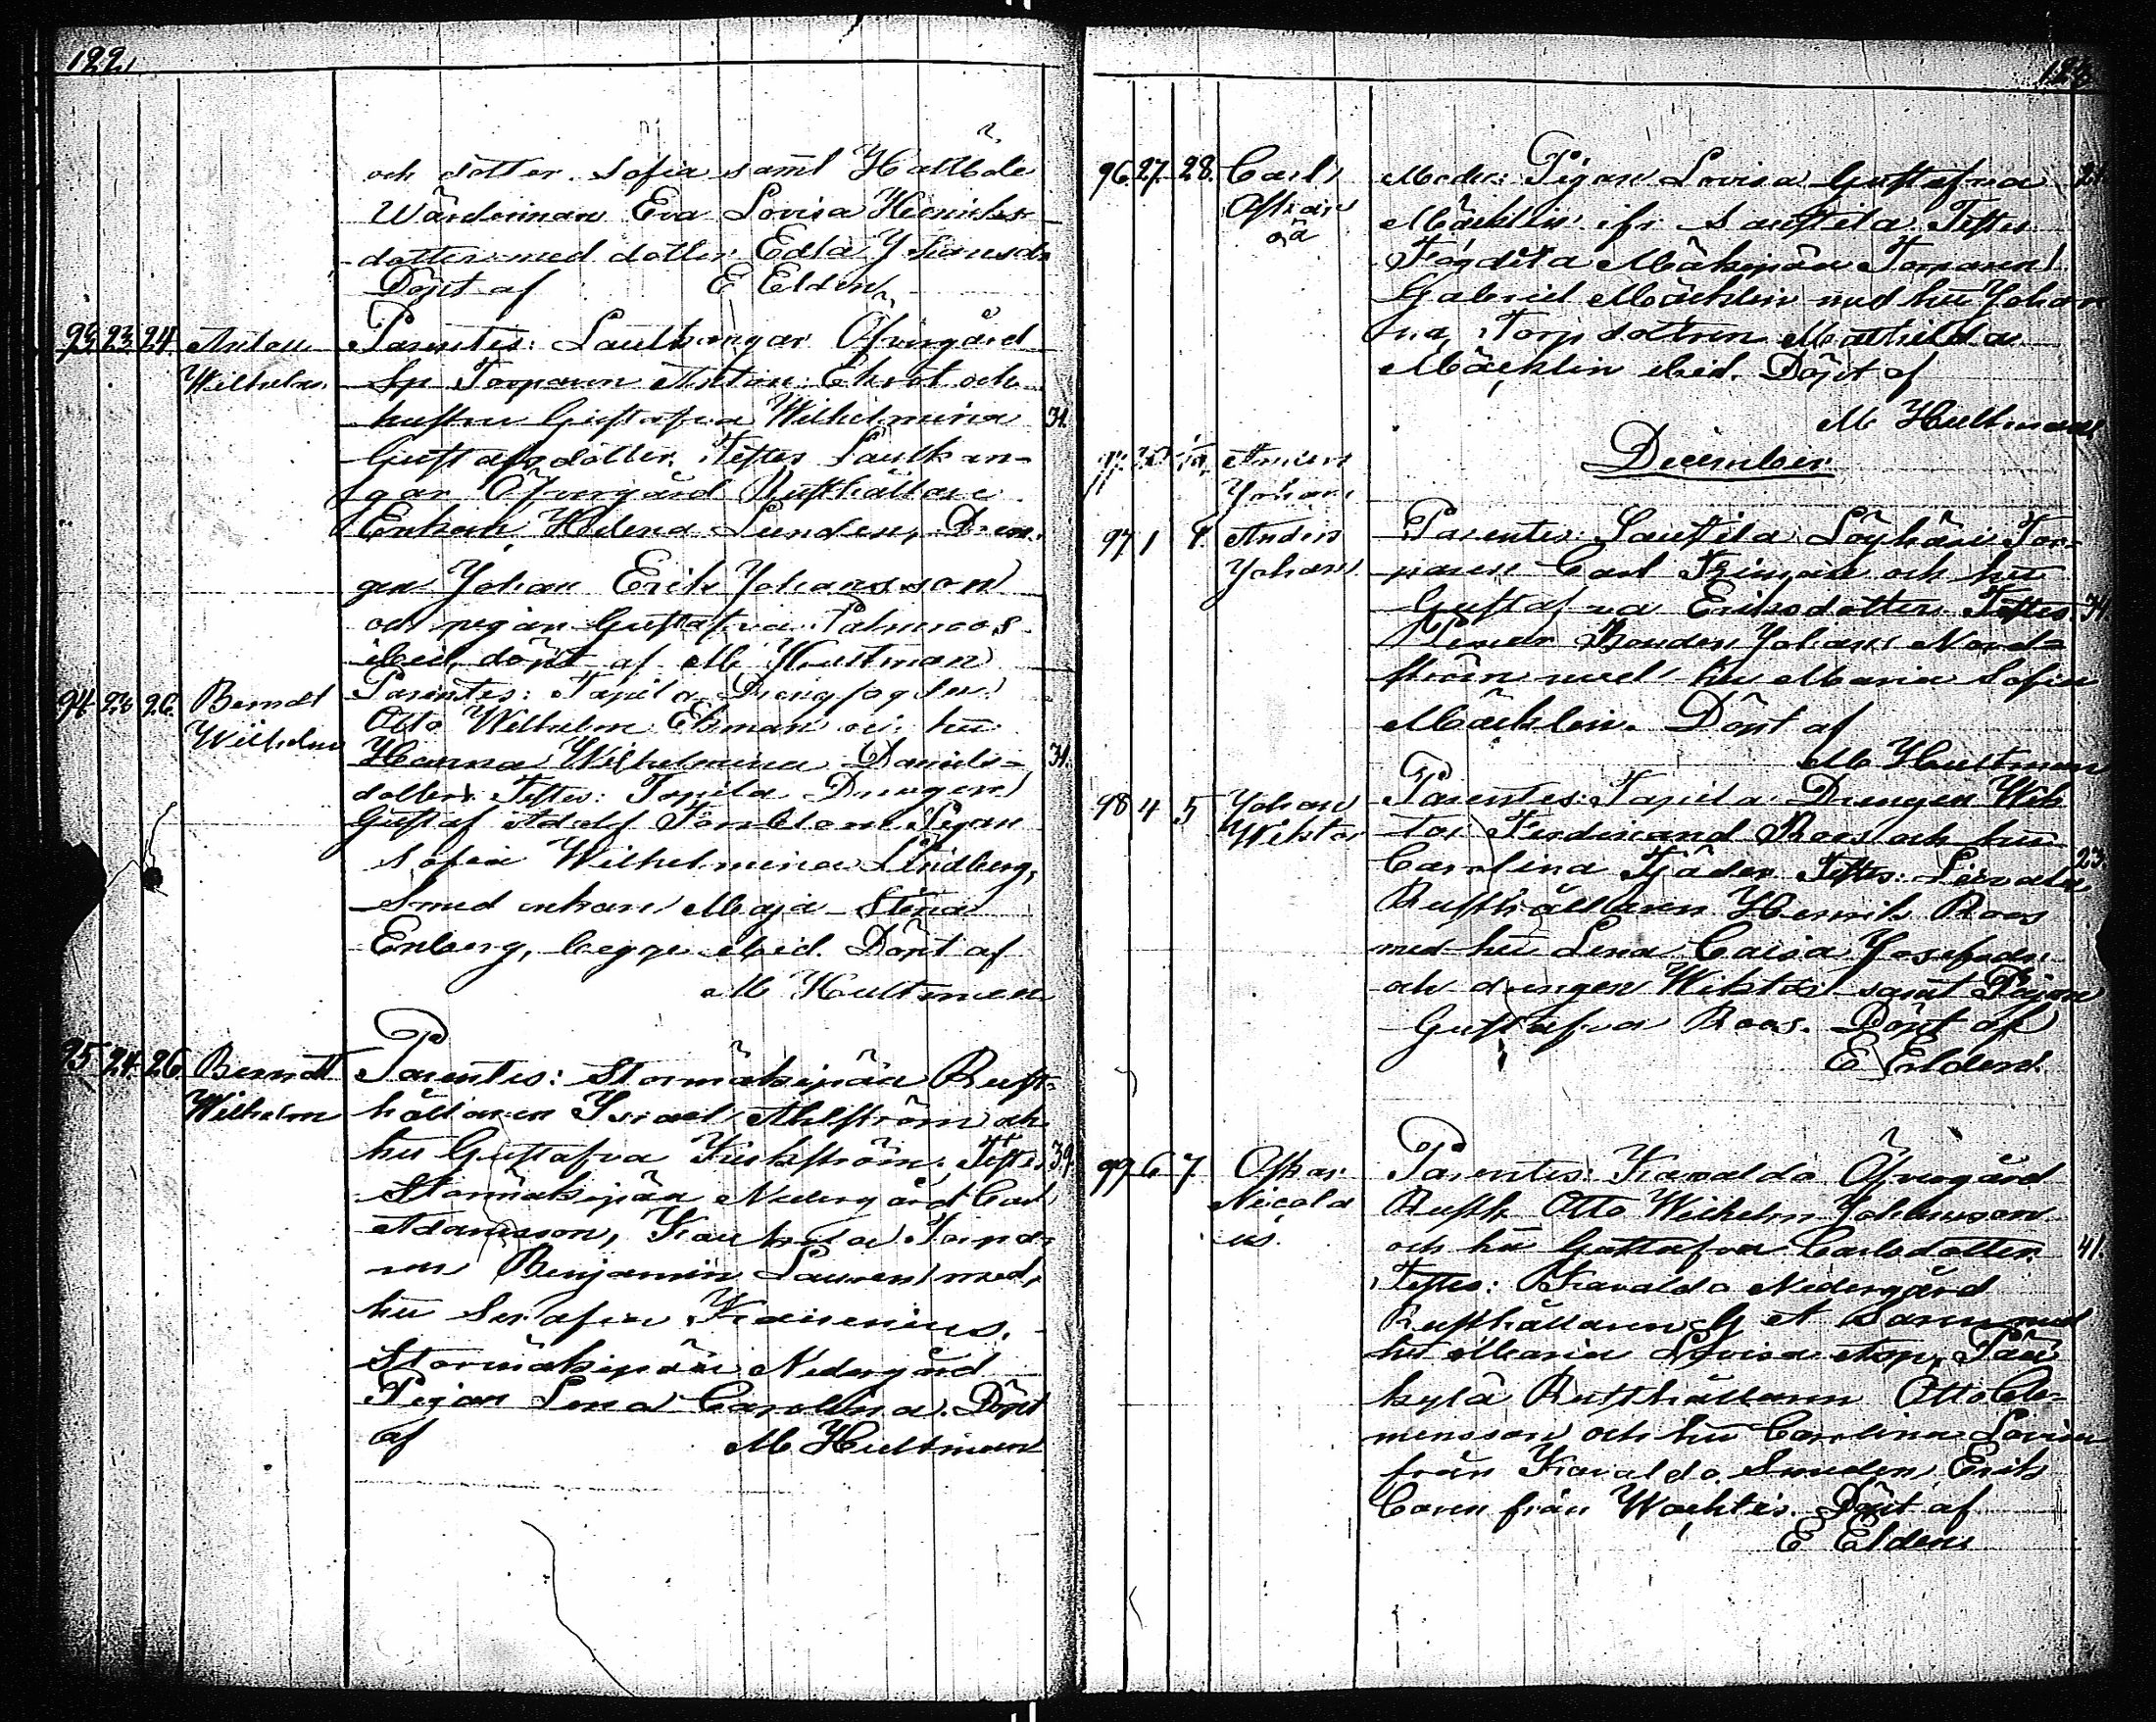 122.
och dotter Sofia samt Hallböle
Wärdinnan Eva Lovisa Henriks-
dotter med dotter Edla Johansdr
Döpt af E Eldén
93 23 24 Anton Parentes: Laulkangar Öfvergård
Wilhelm Sp Torparen Antin Ekrot och
hustru Gustafva Wilhelmina 31.
Gustafsdotter. Testes Laulkan-
gar Öfvergård Rusthållare
Enkan Helena Lunden, Dren-
gen Johan Erik Johansson
och pigan Gustafva Palmroos
ibid, döpt af M Hultman
94 23 26. Berndt Parentes: Tapila Dreng
Wilhelm Otto Wilhelm Ekman och hu
Hanna Wilhelmina Daniels- 31.
dotter. Testes: Tapila Drengen
Gustaf Adolf Pigan
Sofia Wilhelmina Lindberg,
Smed enkan Maja Stina
Enberg, begge ibid. Döpt af
M Hultman
95 24 26 Berndt Parentes: Stormäkipää Rust-
Wilhelm hållaren Israel Ahlström och
hu Gustafva Kirkström. Testes 39.
Stormäkipää Nedergård Carl
Adamsson,
Benjamin Lauren med
hu Serafia
Stormäkipää Nedergård
Pigan Lena Carolina. Döpt
af M Hultman
96. 27. 28. Carl Moder: Pigan Lovisa Gustafva 21
Oskar Mäcklin ifr Sauttila Testes
oä Mäkipää Torparen
Gabriel Mäcklin med hu Johan
na, Torp dottren Mathilda
Mäcklin ibid. Döpt af
M Hultman
Anders December
Johan
97 1 Anders Parentes: Sauttila Löyhäri Tor-
Johan paren Carl och hu
Gustafva Eriksdotter Testes 34.
Bonden Johan Nord-
ström med hu Maria Sofia
Mäcklin. Döpt af
M Hultman
98 4 5 Johan Parentes: Tapila Drengen Wik
Wiktor tor Ferdinand Roos och hu
Carolina Tjäder Testes: 23.
Rusthållaren Henrik Roos
med hu Lena Caisa Josefsdr
och drengen Wiktor samt Pigan
Gustafva Roos. Döpt af
E Eldén.
99 6 7 Oskar Parentes: Karvaldo Öfvergård
Nicola Rusth Otto Wilhelm Johansson
us. och hu Gustafva Carlsdotter 41.
Testes: Karvaldo Nedergård
Rusthållaren G A med
hu Maria Lovisa Asp,
kylä Rusthållaren Otto Cle-
mensson och hu Carolina Lovisa
från Karvaldo. Smeden Erik
Caren från Wachtis. Döpt af
E Eldén